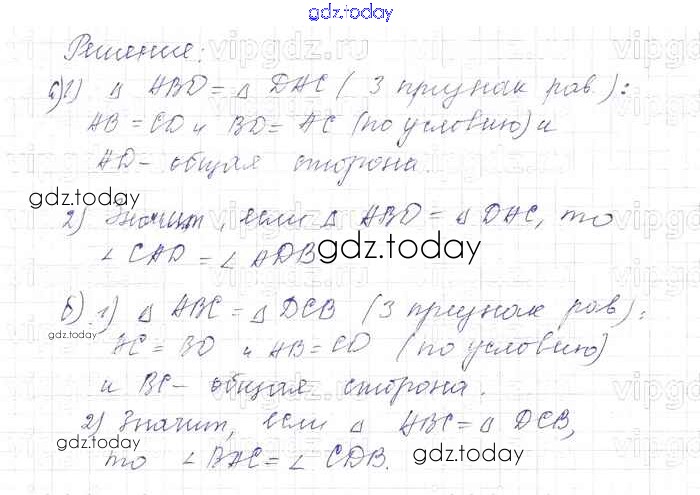 gdz.today
Решение:
а) 1) △ ABD = △ DAC ( 3 признак рав.):
AB = CD и BD = AC (по условию) и
AD - общая сторона.
gdz.today
2) Значит, если △ ABD = △ DAC, то
∠ CAD = ∠ ADB
gdz.today
б) 1) △ ABC = △ DCB (3 признак рав):
gdz.today
AC = BD и AB = CD (по условию)
и BC - общая сторона.
2) Значит, если △ ABC = △ DCB,
gdz.today
то ∠ BAC = ∠ CDB.
gdz.today